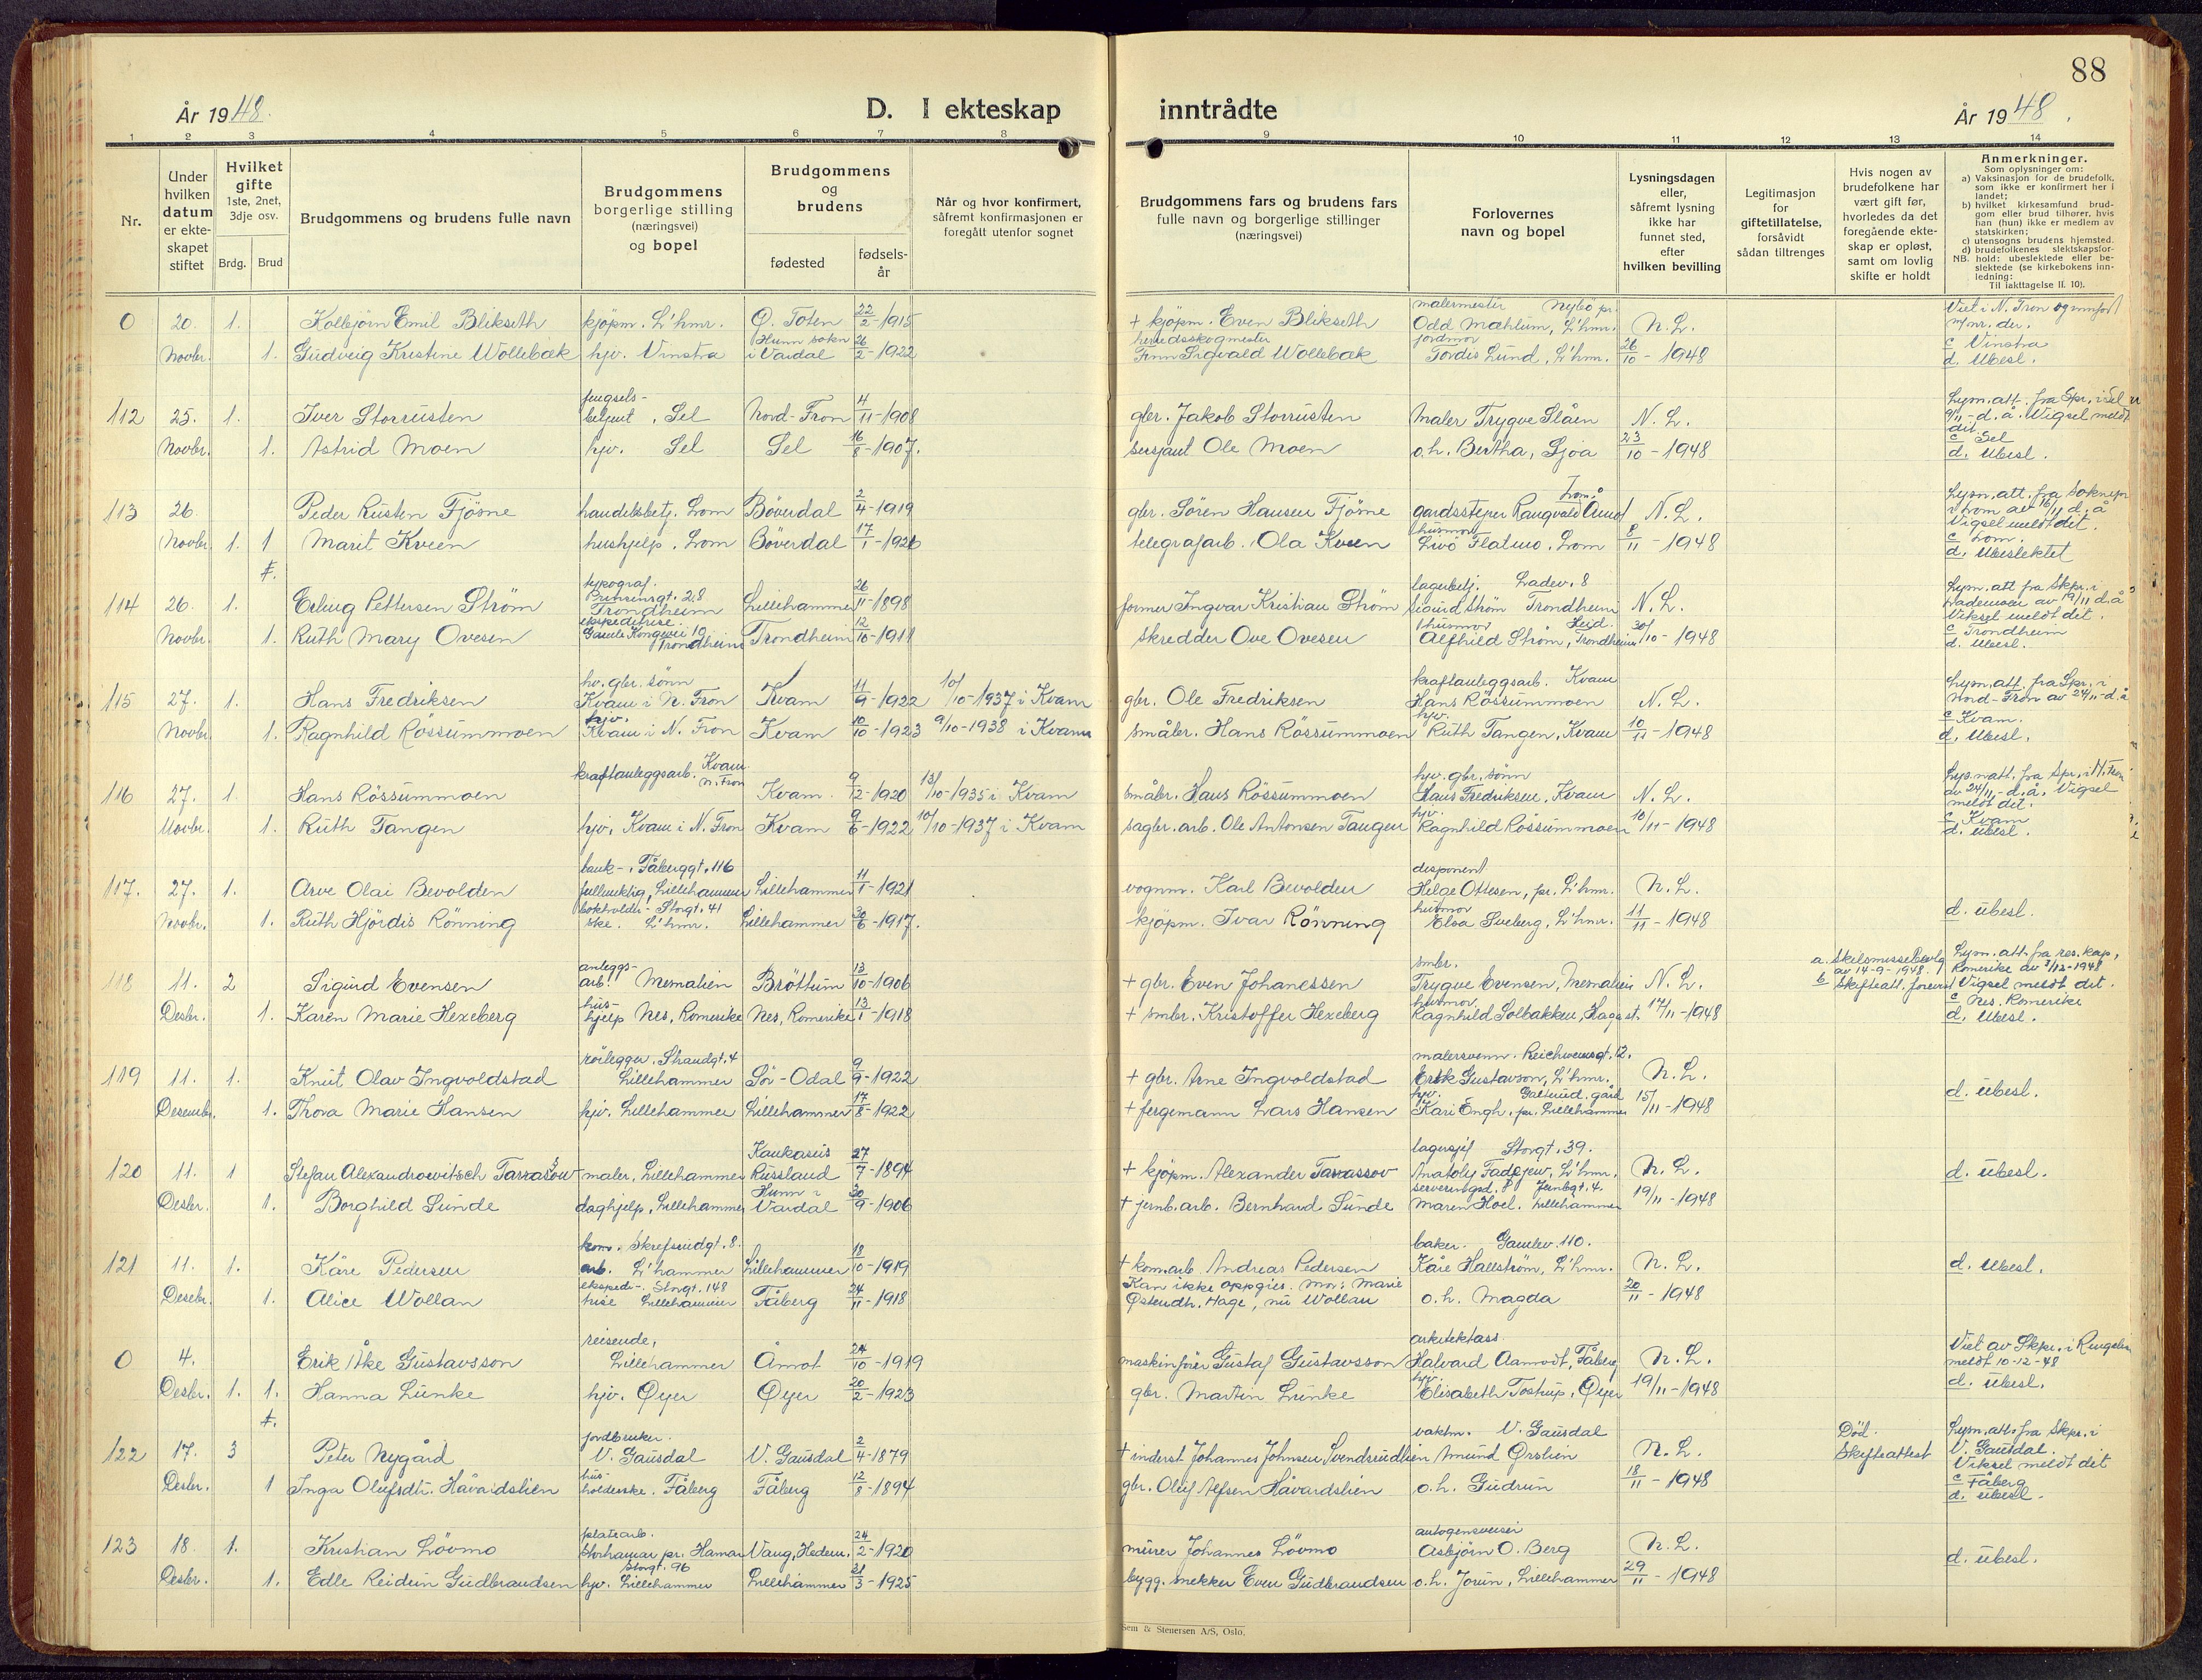 88
År 1948.
D. I ekteskap inntrådte
År 1948.
1 2 3 4 5 6 7 8 9 10 11 12 13 14
Nr.
Under hvilken datum er ekteskapet stiftet
Hvilket gifte 1ste, 2net, 3dje osv.
Brdg. Brud
Brudgommens og brudens fulle navn
Brudgommens borgerlige stilling (næringsvei) og bopel
Brudgommens og brudens
fødested
fødselsår
Når og hvor konfirmert, såfremt konfirmasjonen er foregått utenfor sognet
Brudgommens fars og brudens fars fulle navn og borgerlige stillinger (næringsvei)
Forlovernes navn og bopel
Lysningsdagen eller, såfremt lysning ikke har funnet sted, efter hvilken bevilling
Legitimasjon for giftetillatelse, forsåvidt sådan tiltrenges
Hvis nogen av brudefolkene har vært gift før, hvorledes da det foregående ekteskap er opløst, samt om lovlig skifte er holdt
Anmerkninger.
Som oplysninger om:
a) Vaksinasjon for de brudefolk, som ikke er konfirmert her i landet;
b) hvilket kirkesamfund brudgom eller brud tilhører, hvis han (hun) ikke er medlem av statskirken;
c) utensogns brudens hjemsted.
d) brudefolkenes slektskapsforhold: ubeslektede eller beslektede (se kirkebokens innledning:
NB.
Til iakttagelse II. 10).
malermester Nybo pr.
Viet i N. Fron og innført
0 20. 1. Kolbjörn Emil Blikseth kjöpm. L'hmr. Ö. Toten 22/2-1915 + kjöpm. Even Blikseth Odd Mæhlum, L'hmr. N. L. m/nr. der.
Hunn sokn herredsskogmester jordmor c Vinstra
Novbr. 1. Gudveig Kristine Wollebæk hjv. Vinstra i Vardal 26/2-1922 Finn Sigvald Wollebæk Tordis Lund, L'hm. 26/10-1948 d. Ubesl.
fengsels- Lysn. att. fra Spr. i Sel
112 25. 1. Iver Storrusten betjent, Sel Nord-Fron 4/11-1908 gbr. Jakob Storrusten Maler Trygve Slåen N. L. 9/11-d.å. Vigsel meldt dit.
c Sel
Novbr. 1. Astrid Moen hjv. Sel Sel 16/8-1907. sersjant Ole Moen o.h. Bertha, Sjoa 23/10-1948 d. Ubesl.
Lom. Lysn. att. fra sokneper
113 26. Peder Rusten Fjösne handelsbetj. Lom Böverdal 2/4-1919 gbr. Sören Hansen Fjösne N. L. i Lom av 16/11 d.å
husmor Vigsel meldt dit.
Novbr. 1. 1 Marit Kveen hushjelp. Lom Böverdal 17/1-1926 telegrafarb. Ola Kveen Livö Flatmo, Lom 8/11-1948 c Lom.
d. Ubeslektet
typograf. lagerbetj. Ladev. 8 Lysn. att fra Skpr. i
114 26. 1. Erling Pettersen Ström Trondheim Lillehammer 26/11-1898 former Ingvar Kristian Ström Sigurd Ström Trondheim N. L. Lademoen av 19/11 d.å
ekspeditrise. Gamle Kongevei 19 husmor Heid. Viksel meldt dit.
Novbr. 1. Ruth Mary Ovesen Trondheim Trondheim 12/10-1911 skredder Ove Ovesen Alfhild Ström, Trondheim 30/10-1948 c Trondheim
d. Ubesl.
hv. gbr. sönn kraftanleggsarb. Kvam Lysn. att. fra Spr. i
115 27. 1. Hans Fredriksen Kvam i N. Fron Kvam 11/9-1922 10/10-1937 i Kvam gbr. Ole Fredriksen Hans Rössummoen N. L. Nord-Fron av 24/11-d.å
hjv. hjv. c Kvam.
Novbr. 1. Ragnhild Rössummoen Kvam i N. Fron Kvam 10/10-1923 9/10-1938 i Kvam småbr. Hans Rössummoen Ruth Tangen, Kvam 10/11-1948 d. Ubesl.
kraftanleggsarb. Kvam N. Fron hjv. gbr. sönn Lysn. att. fra Spr. i N. Fron
116 27. 1. Hans Rössummoen Kvam. 9/12-1920 13/10-1935 i Kvam småbr. Hans Rössummoen Hans Fredriksen, Kvam N. L. av 24/11-d.å. Vigsel meldt dit.
hjv. c Kvam
Novbr. 1. Ruth Tangen hjv. Kvam i N. Fron Kvam 9/6-1922 10/10-1937 i Kvam sagbr. arb. Ole Antonsen Tangen Ragnhild Rössummoen 10/11-1948 d. ubesl.
bank-, Fåberggt. 116 disponent
117. 27. 1. Arve Olai Bevolden fullmektig, Lillehammer Lillehammer 11/1-1921 vognm. Karl Bevolden Helge Ottesen, pr. L'hmr. N. L.
bokholder- Storgt. 41 husmor
Novbr. 1. Ruth Hjördis Rönning ske. L'hmr. Lillehammer 30/6-1917. kjöpm. Ivar Rönning Elsa Sveberg, L'hmr. 11/11-1948 d. ubesl.
anleggs- smbr. a. Skilsmissebevilg Lysn. att. fra res. kap,
118 11. 2 Sigurd Evensen arb. Mesnalien Bröttum 13/10-1906 + gbr. Even Johanessen Trygve Evensen, Mesnalien N. L. av 14-9-1948. Romerike av 3/12-1948
b Skifteatt. forevist Vigsel meldt dit.
hus- husmor c Nes. Romerike
Desbr. 1. Karen Marie Hexeberg hjelp Nes, Romerike Nes, Romerike 13/1-1918 + smbr. Kristoffer Hexeberg Ragnhild Solbakken, Hagast. 17/11-1948 d. Ubesl.
rörlegger. Strandgt. 4 malersvenn. Reichweinsgt. 12.
119 11. 1. Knut Olav Ingvoldstad Lillehammer Sör-Odal 9/9-1922 + gbr. Arne Ingvoldstad Erik Gustavson, L'hmr. N. L.
hjv. gård
Desembr. 1. Thora Marie Hansen hjv. Lillehammer Lillehammer 17/8-1922 + fergemann Lars Hansen Kari Engh. pr. Lillehammer 15/11-1948 d. ubesl.
Kaukasus lagersjef Storgt. 39.
120 11. 1 Stefan Alexandrowitsch Tarrassow maler, Lillehammer Russland 27/7-1894 + kjöpm. Alexander Tarrassov Anatoly Fadejew, L'hmr. N. L. d. ubesl.
Hunn i serveringsd. Jernbgt. 4.
Desbr. 1. Borghild Sunde daghjelp, Lillehammer Vardal 30/9-1906 + jernb. arb. Bernhard Sunde Maren Hoel. Lillehammer 19/11-1948
kom. Skrefsrudgt. 8. baker. Gamlev. 110.
121 11. 1. Kåre Pedersen arb. L'hammer Lillehammer 18/10-1919 + kom. arb. Andreas Pedersen Kåre Hallström, L'hmr. N. L. d. Ubesl.
ekspedi-. Storgt. 148 Kan ikke oppgies. Mor: Marie
Desbr. 1. Alice Wollan trise Lillehammer Fåberg 24/11-1918 Østendtr. Hage, nu Wollan o.h. Magda 20/11-1948
reisende, arkitektass. Viet av Skpr. i Ringebu
0 4. Erik Åke Gustavsson Lillehammer Åmot 24/10-1919 maskinfører Gustaf Gustavsson Halvard Aamodt, Fåberg N. L. meldt 10-12-48
hjv.
Desbr. 1. 1. Hanna Lunke hjv. Øyer Øyer 20/2-1923 gbr. Martin Lunke Elisabeth Tostrup, Øyer 19/11-1948 d. ubesl.
jordbruker. vaktm. V. Gausdal Död. Lysn. att. fra Skpr. i
122 17. 3 Peter Nygård V. Gausdal V. Gausdal 2/4-1879 + inderst Johannes Johnsen Svendsrudlien Amund Ørslien N. L. Skifteattest V. Gausdal.
Viksel meldt dit
hus- c Fåberg
Desbr. 1 Inga Olufsdtr. Håvardslien holderske. Fåberg Fåberg 12/8-1894 gbr. Oluf Alfsen Håvardslien o.h. Gudrun 18/11-1948 d. ubesl.
platearb. autogensveiser
123 18. 1. Kristian Lövmo Storhamar pr. Hamar Vang, Hedem. 24/2-1920 murer Johannes Lövmo Asbjörn O. Berg N. L.
Storgt. 96 d. ubesl.
Desbr. 1. Edle Reidun Gudbrandsen hjv. Lillehammer Lillehammer 21/3-1925 bygg. snekker Even Gudbrandsen o.h. Jorun, Lillehammer 29/11-1948
Sem & Stenersen A/S, Oslo.